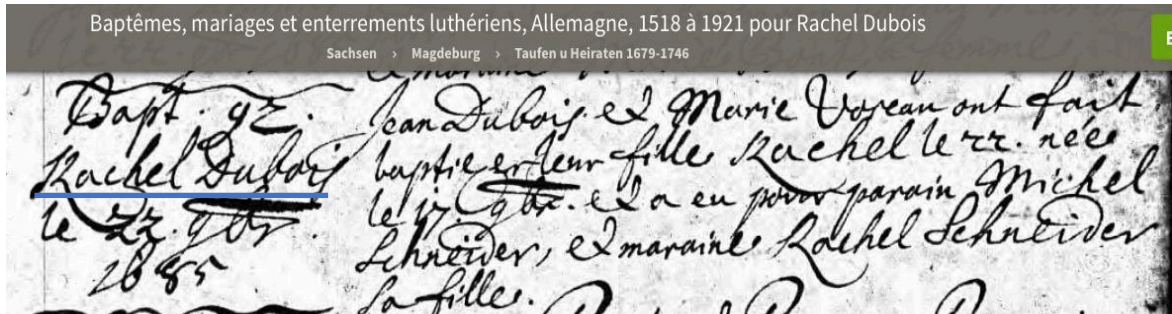 Baptêmes, mariages et enterrements luthériens, Allemagne, 1518 à 1921 pour Rachel Dubois
Sachsen › Magdeburg › Taufen u Heiraten 1679-1746
Bapt. 92.
Rachel Dubois
le 22. 9br.
1685
Jean Dubois et Marie Voreau ont fait
baptiser leur fille Rachel le 22. née
le 17. 9br. et a eu pour parain Michel
Schneider, et maraine Rachel Schneider
sa fille.